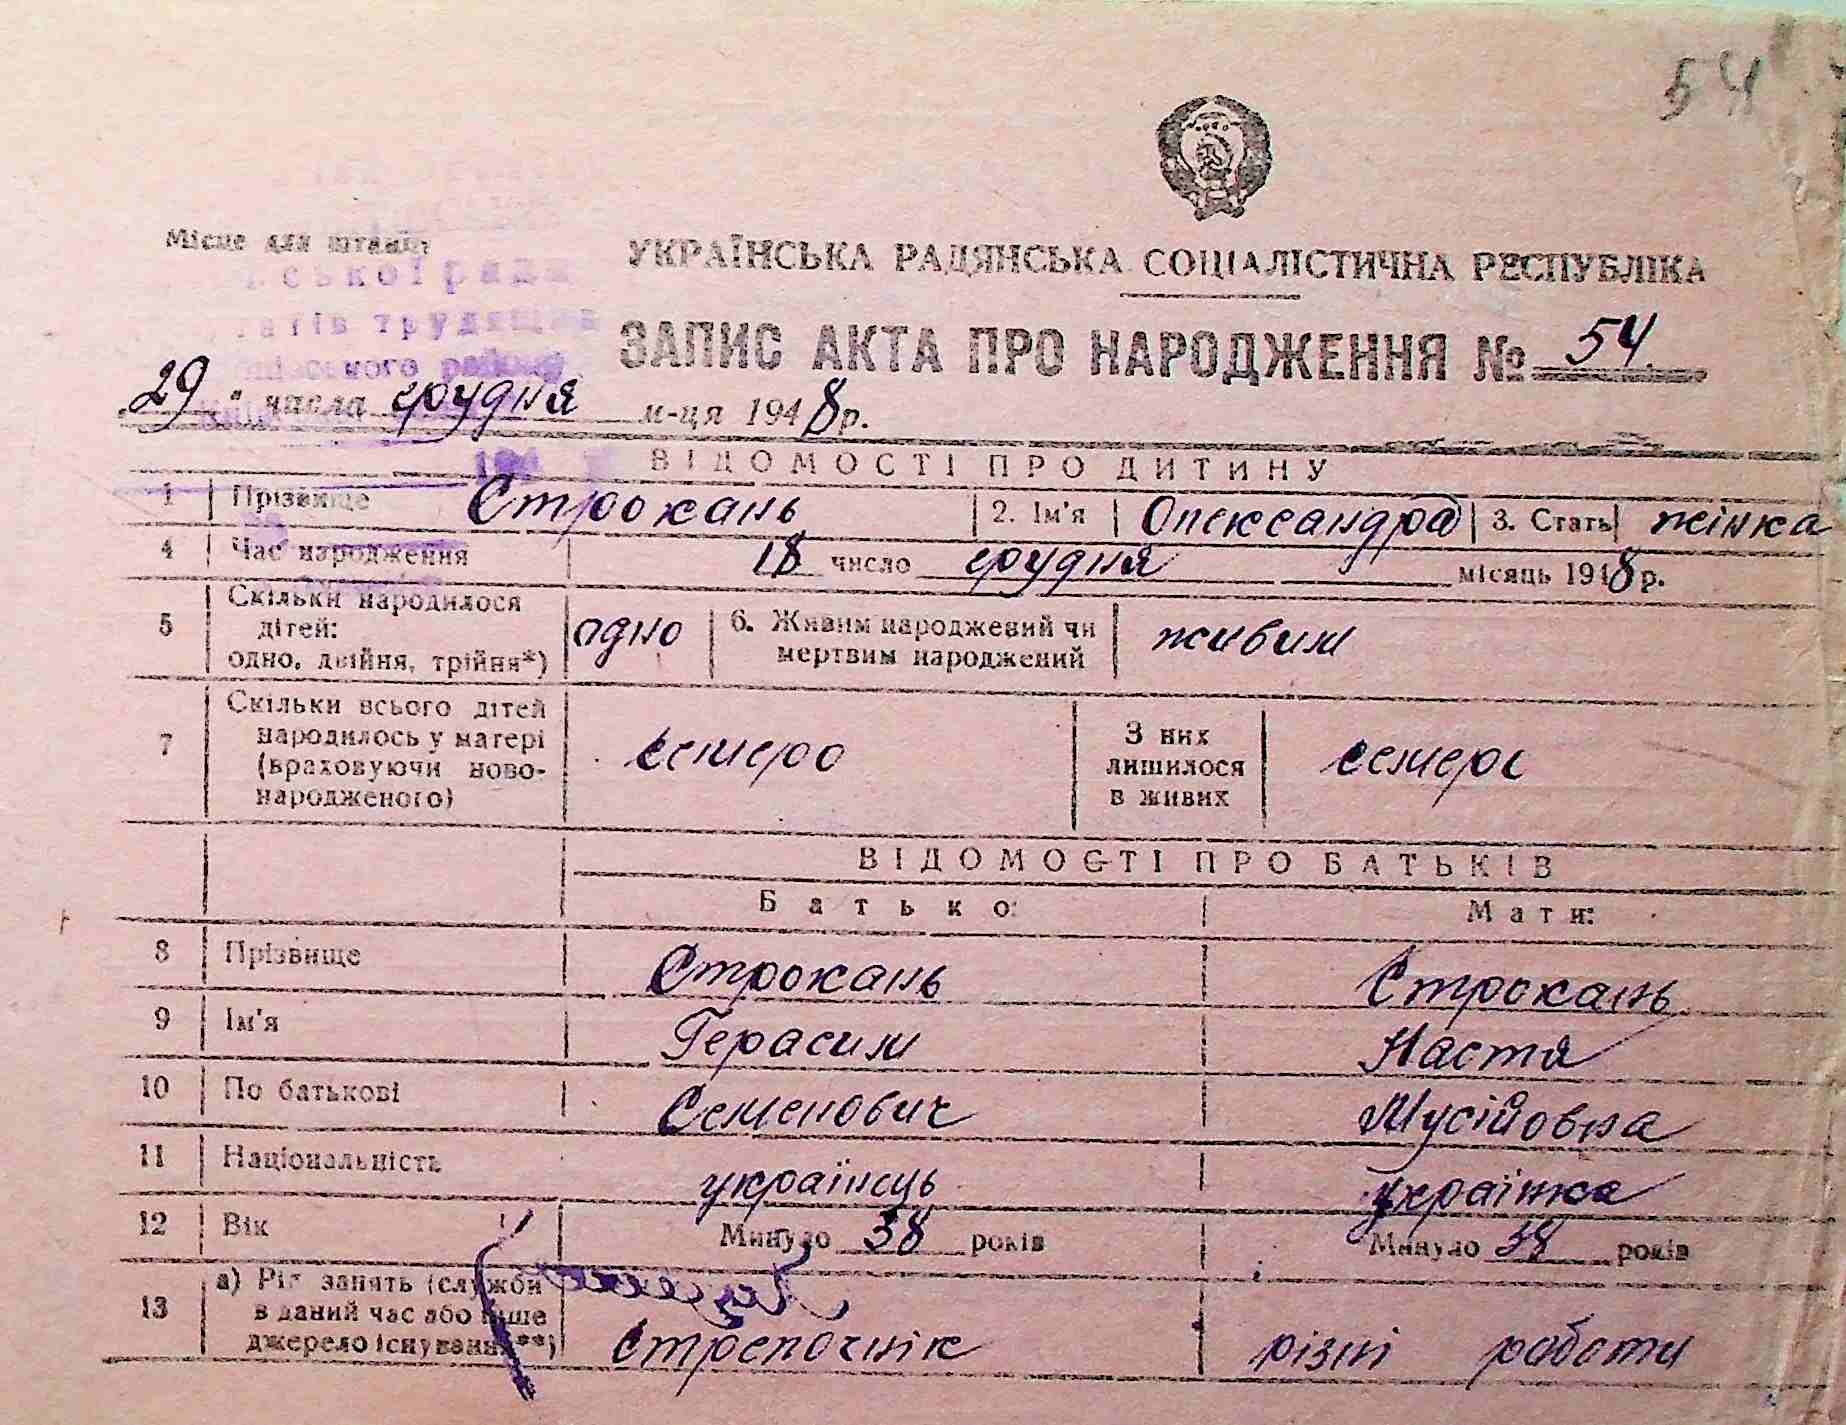 54
Місце для штампу
ської рада
трудящих
ського району
УКРАЇНСЬКА РАДЯНСЬКА СОЦІАЛІСТИЧНА РЕСПУБЛІКА
ЗАПИС АКТА ПРО НАРОДЖЕННЯ № 54
„29" числа грудня м-ця 1948 р.
194
ВІДОМОСТІ ПРО ДИТИНУ
1 Прізвище Строкань 2. Ім'я Олександра 3. Стать жінка
4 Час народження 18 число грудня місяць 1948 р.
5 Скільки народилося
дітей:
одно, двійня, трійня*) одно 6. Живим народжений чи
мертвим народжений живим
7 Скільки всього дітей
народилось у матері
(враховуючи ново-
народженого) семеро З них
лишилося
в живих семеро
ВІДОМОСТІ ПРО БАТЬКІВ
Батько: Мати:
8 Прізвище Строкань Строкань
9 Ім'я Герасим Настя
10 По батькові Семенович Мусійовна
11 Національність українець українка
12 Вік Минуло 38 років Минуло 38 років
13 а) Рід занять (служби
в даний час або інше
джерело існування**) Стрелочнік різні работи